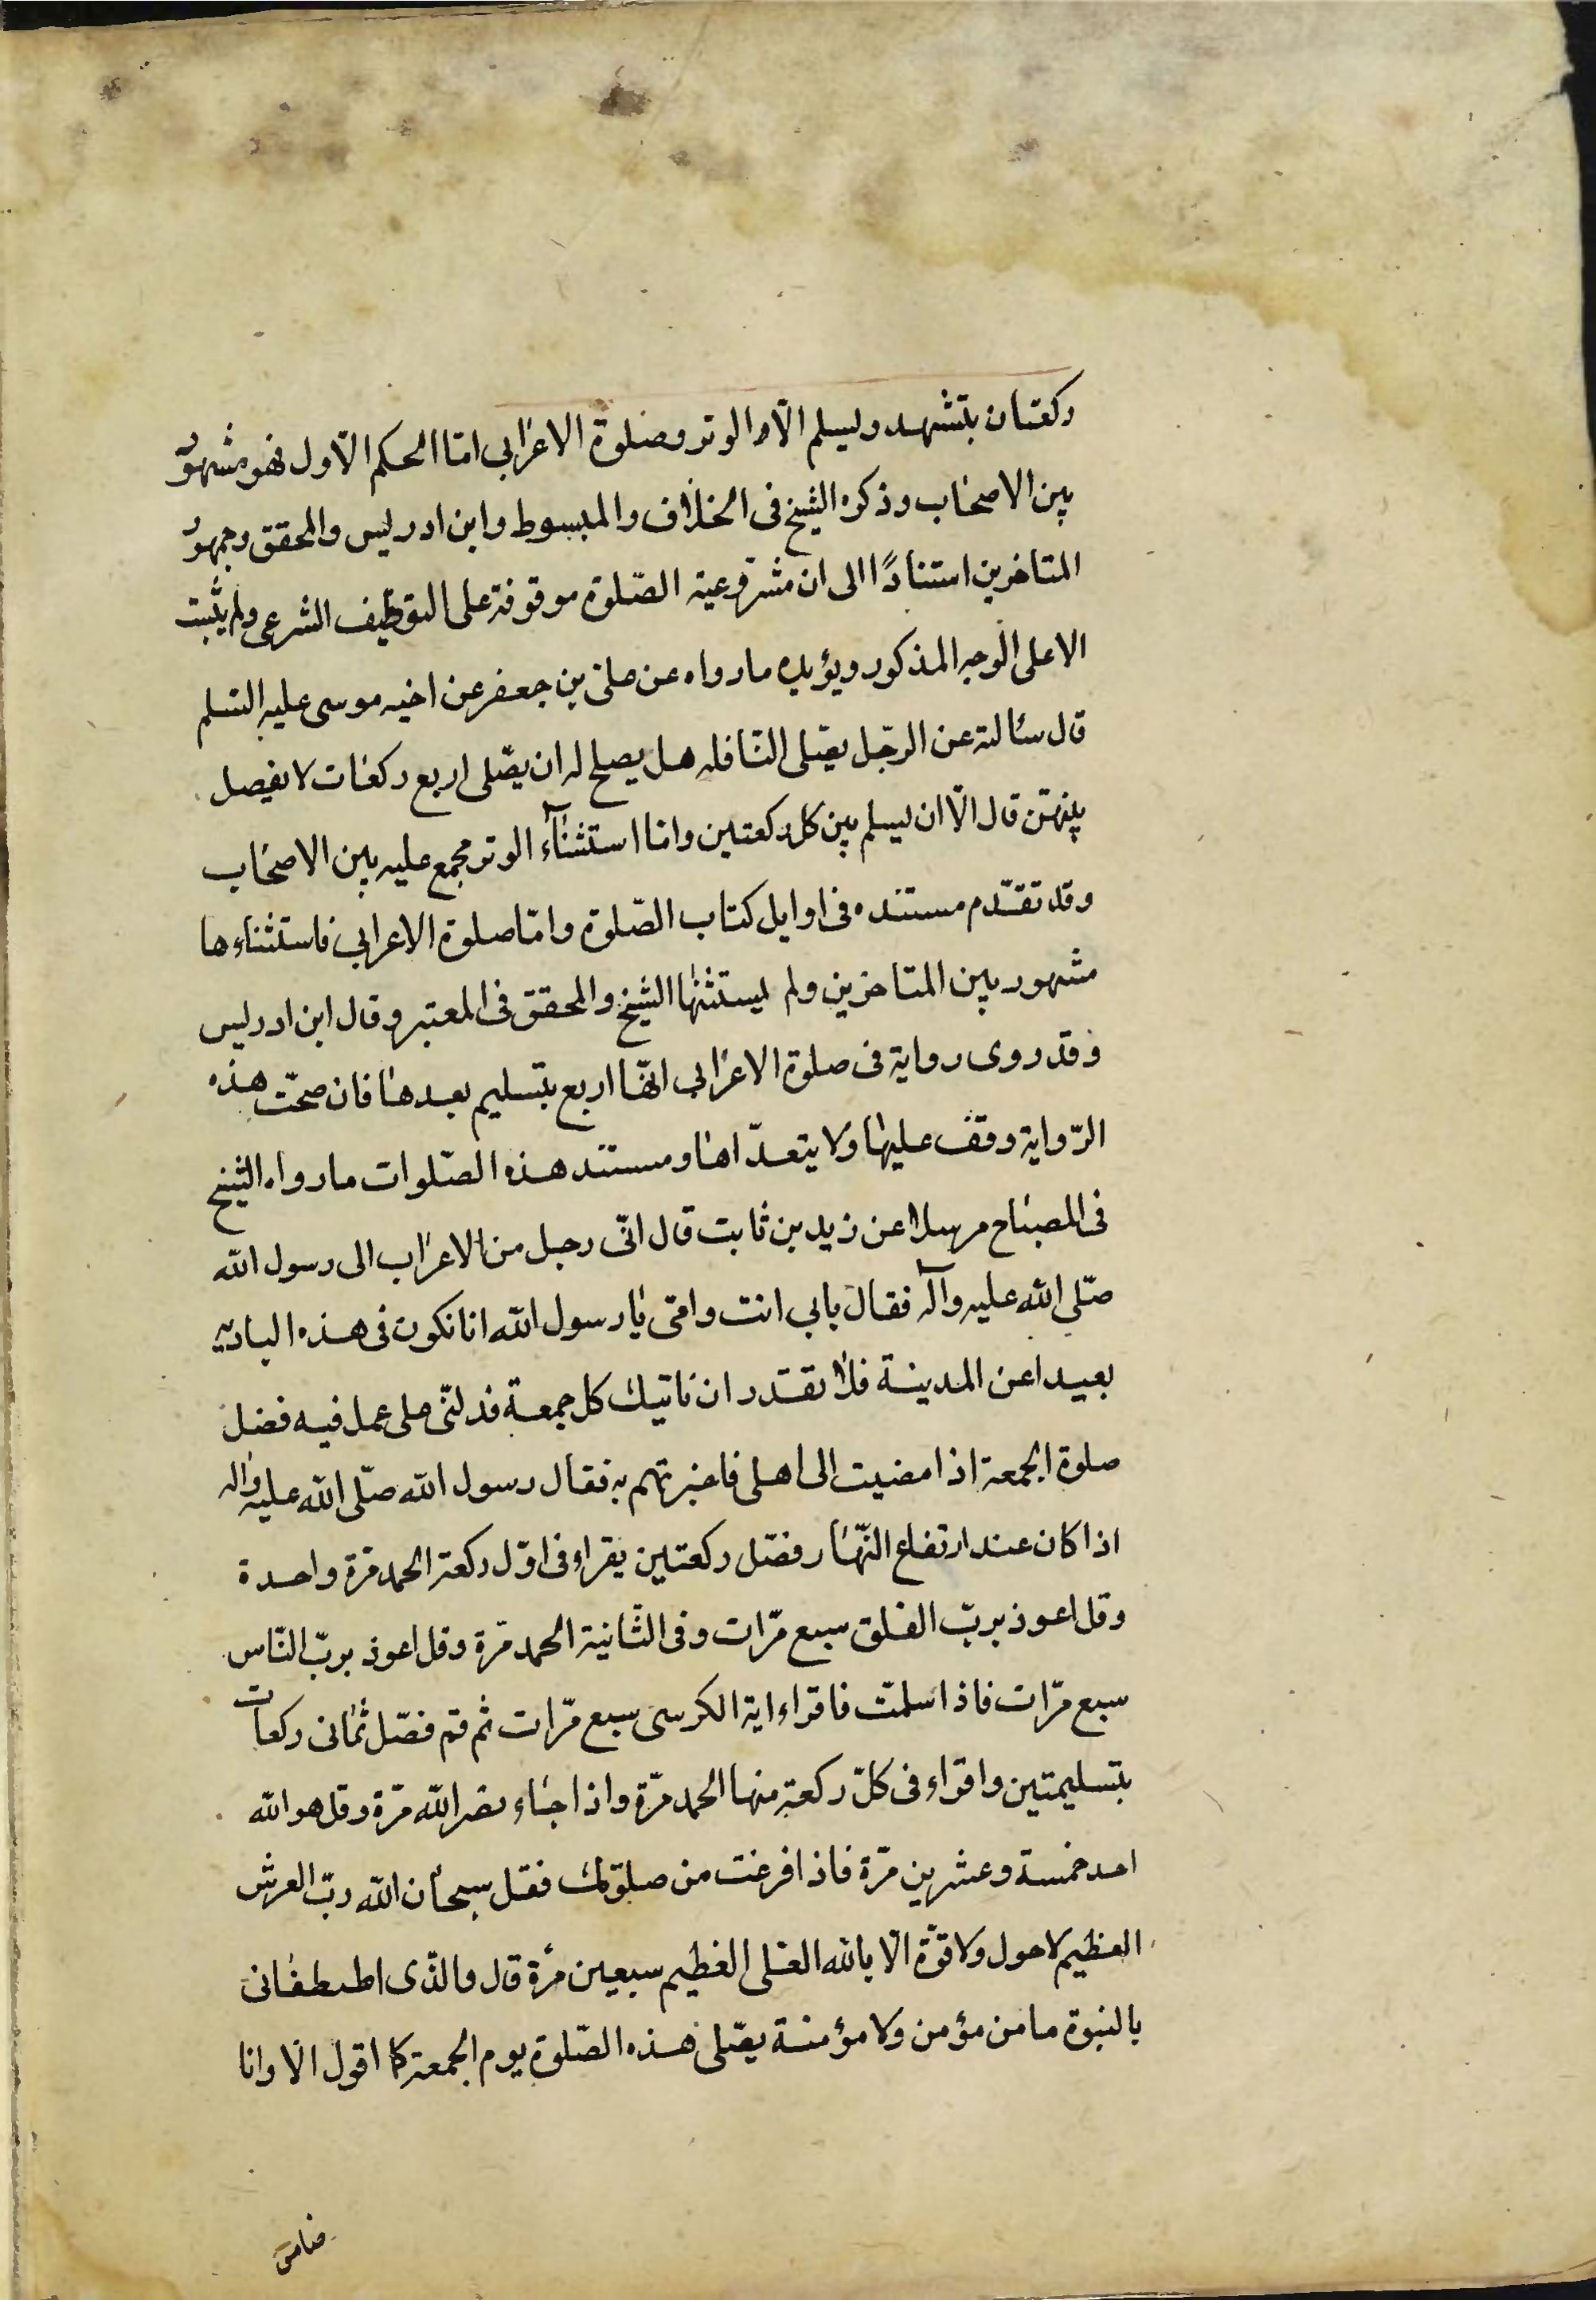 ركعتان بتشهد وليسلم الّا الوتر وصلوة الاعرابي امّا الحكم الّاول فهو مشهور
بين الاصحاب وذكره الشيخ فى الخلاف والمبسوط وابن ادريس والمحقق وجمهور
المتاخرين استنادًا الى ان مشروعية الصّلوة موقوفة على التوظيف الشرعى ولم يثبت
الا على الوجه المذكور ويؤيده مارواه عن على بن جعفر عن اخيه موسى عليه السّلم
قال سئالته عن الرّجل يصّلى النّافله هل يصلح له ان يصّلى اربع ركعات لا يفصل
بينهنّ قال الّا ان يسلم بين كل ركعتين وامّا استثنآء الوتر مجمع عليه بين الاصحاب
وقد تقدّم مستنده فى اوايل كتاب الصّلوة وامّا صلوة الاعرابي فاستثناءها
مشهور بين المتاخرين ولم يستثنها الشيخ والمحقق فى المعتبر وقال ابن ادريس
وقد روى رواية فى صلوة الاعرابي انّها اربع بتسليم بعدها فان صحّت هذه
الرّواية وقف عليها ولا يتعدّاها ومستند هذه الصّلوات مارواه الشيخ
فى المصباح مرسلا عن زيد بن ثابت قال اتى رجل من الاعراب الى رسول الله
صّلى الله عليه وآله فقال بابي انت وامّى يا رسول الله انا نكون فى هذه البادية
بعيدا عن المدينة فلا نقدر ان ناتيك كل جمعة فدلنّى على عمل فيه فضل
صلوة الجمعة اذا مضيت الى اهلى فاخبرتهم به فقال رسول الله صّلى الله عليه واله
اذا كان عند ارتفاع النّهار فصّل ركعتين يقراء فى اوّل ركعة الحمد مرّة واحدة
وقل اعوذ بربّ الفلق سبع مرّات وفى الثّانية الحمد مرّة وقل اعوذ بربّ النّاس
سبع مرّات فاذا سلمت فاقراء اية الكرسى سبع مرّات ثم قم فصّل ثمانى ركعات
بتسليمتين واقراء فى كلّ ركعة منها الحمد مرّة واذا جاء نصر الله مرّة وقل هو الله
احد خمسة وعشرين مرّة فاذا فرغت من صلوتك فقل سبحان الله ربّ العرش
العظيم لاحول ولا قوّة الّا بالله العلى العظيم سبعين مرّة قال والذّى اصطفانى
بالنبوة مامن مؤمن ولا مؤمنة يصّلى هذه الصّلوة يوم الجمعة كما اقول الّا وانا
ضامن